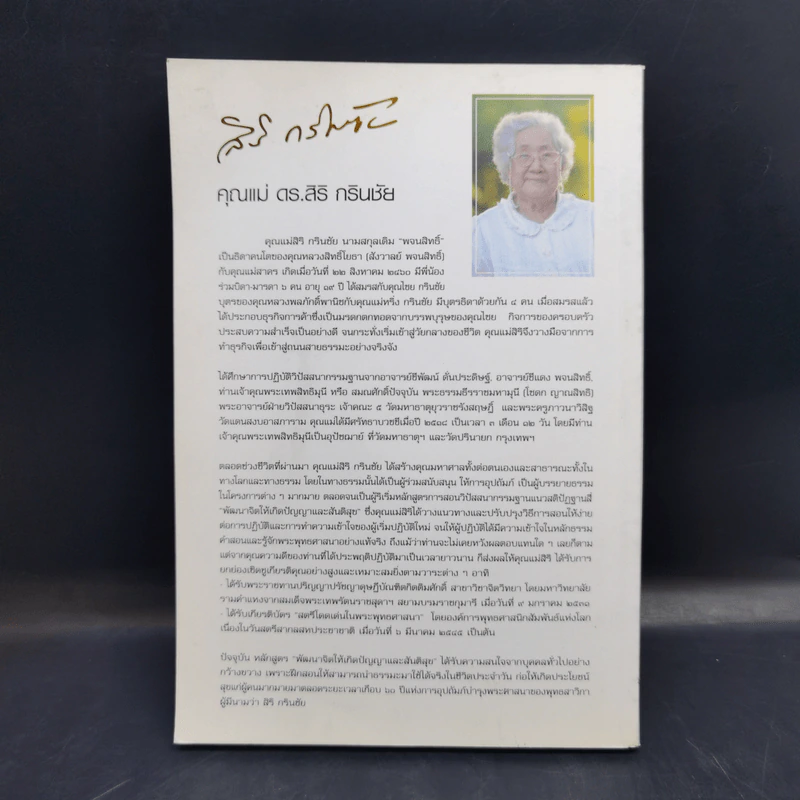 สิริ กรินชัย
คุณแม่ ดร.สิริ กรินชัย
คุณแม่สิริ กรินชัย นามสกุลเดิม "พจนสิทธิ์"
เป็นธิดาคนโตของคุณหลวงสิทธิ์โยธา (สังวาลย์ พจนสิทธิ์)
กับคุณแม่สาคร เกิดเมื่อวันที่ ๒๒ สิงหาคม ๒๔๖๐ มีพี่น้อง
ร่วมบิดา-มารดา ๖ คน อายุ ๑๙ ปี ได้สมรสกับคุณไชย กรินชัย
บุตรของคุณหลวงพลภักดิ์พานิชกับคุณแม่หริ่ง กรินชัย มีบุตรธิดาด้วยกัน ๔ คน เมื่อสมรสแล้ว
ได้ประกอบธุรกิจการค้าซึ่งเป็นมรดกตกทอดจากบรรพบุรุษของคุณไชย กิจการของครอบครัว
ประสบความสำเร็จเป็นอย่างดี จนกระทั่งเริ่มเข้าสู่วัยกลางของชีวิต คุณแม่สิริจึงวางมือจากการ
ทำธุรกิจเพื่อเข้าสู่ถนนสายธรรมะอย่างจริงจัง
ได้ศึกษาการปฏิบัติวิปัสสนากรรมฐานจากอาจารย์ชีพัฒน์ ตั่นประดิษฐ์, อาจารย์ชีแดง พจนสิทธิ์,
ท่านเจ้าคุณพระเทพสิทธิมุนี หรือ สมณศักดิ์ปัจจุบัน พระธรรมธีรราชมหามุนี (โชดก ญาณสิทธิ)
พระอาจารย์ฝ่ายวิปัสสนาธุระ เจ้าคณะ ๕ วัดมหาธาตุยุวราชรังสฤษฎิ์ และพระครูภาวนาวิสิฐ
วัดแดนสงบอาสภาราม คุณแม่ได้มีศรัทธาบวชชีเมื่อปี ๒๕๐๘ เป็นเวลา ๓ เดือน ๑๒ วัน โดยมีท่าน
เจ้าคุณพระเทพสิทธิมุนีเป็นอุปัชฌาย์ ที่วัดมหาธาตุฯ และวัดปรินายก กรุงเทพฯ
ตลอดช่วงชีวิตที่ผ่านมา คุณแม่สิริ กรินชัย ได้สร้างคุณมหาศาลทั้งต่อตนเองและสาธารณะทั้งใน
ทางโลกและทางธรรม โดยในทางธรรมนั้นได้เป็นผู้ร่วมสนับสนุน ให้การอุปถัมภ์ เป็นผู้บรรยายธรรม
ในโครงการต่าง ๆ มากมาย ตลอดจนเป็นผู้ริเริ่มหลักสูตรการสอนวิปัสสนากรรมฐานแนวสติปัฏฐานสี่
"พัฒนาจิตให้เกิดปัญญาและสันติสุข" ซึ่งคุณแม่สิริได้วางแนวทางและปรับปรุงวิธีการสอนให้ง่าย
ต่อการปฏิบัติและการทำความเข้าใจของผู้เริ่มปฏิบัติใหม่ จนให้ผู้ปฏิบัติได้มีความเข้าใจในหลักธรรม
คำสอนและรู้จักพระพุทธศาสนาอย่างแท้จริง ถึงแม้ว่าท่านจะไม่เคยหวังผลตอบแทนใด ๆ เลยก็ตาม
แต่จากคุณความดีของท่านที่ได้ประพฤติปฏิบัติมาเป็นเวลายาวนาน ก็ส่งผลให้คุณแม่สิริ ได้รับการ
ยกย่องเชิดชูเกียรติคุณอย่างสูงและเหมาะสมยิ่งตามวาระต่าง ๆ อาทิ
- ได้รับพระราชทานปริญญาปรัชญาดุษฎีบัณฑิตกิตติมศักดิ์ สาขาวิชาจิตวิทยา โดยมหาวิทยาลัย
รามคำแหงจากสมเด็จพระเทพรัตนราชสุดาฯ สยามบรมราชกุมารี เมื่อวันที่ ๙ มกราคม ๒๕๓๑
- ได้รับเกียรติบัตร "สตรีโดดเด่นในพระพุทธศาสนา" โดยองค์การพุทธศาสนิกสัมพันธ์แห่งโลก
เนื่องในวันสตรีสากลสหประชาชาติ เมื่อวันที่ ๖ มีนาคม ๒๕๔๕ เป็นต้น
ปัจจุบัน หลักสูตร "พัฒนาจิตให้เกิดปัญญาและสันติสุข" ได้รับความสนใจจากบุคคลทั่วไปอย่าง
กว้างขวาง เพราะฝึกสอนให้สามารถนำธรรมะมาใช้ได้จริงในชีวิตประจำวัน ก่อให้เกิดประโยชน์
สุขแก่ผู้คนมากมายมาตลอดระยะเวลาเกือบ ๖๐ ปีแห่งการอุปถัมภ์บำรุงพระศาสนาของพุทธสาวิกา
ผู้มีนามว่า สิริ กรินชัย